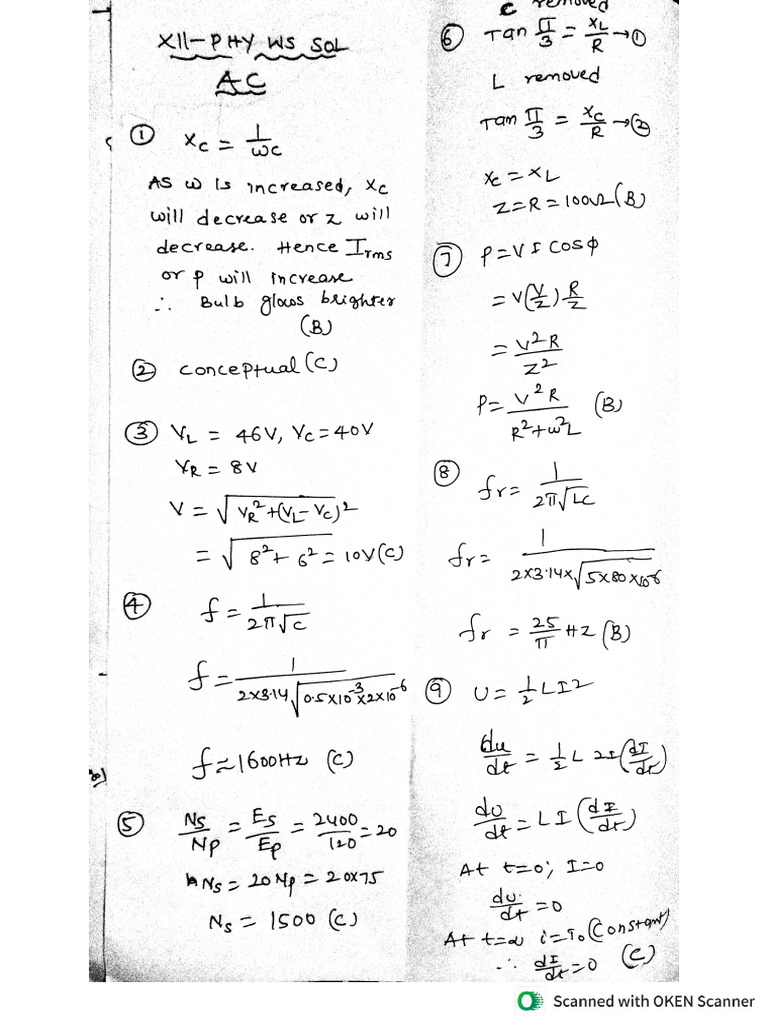 XII-PHY WS SOL
AC
① Xc = 1/ωc
AS ω is increased, Xc
will decrease or z will
decrease. Hence Irms
or P will increase
∴ Bulb glows brighter
(B)
② conceptual (C)
③ VL = 46V, Vc = 40V
VR = 8V
V = √VR²+(VL-Vc)²
= √8²+6² = 10V(C)
④ f = 1/2π√C
f = 1/2×3.14√0.5×10⁻³×2×10⁻⁶
f ≈ 1600Hz (C)
⑤ Ns/Np = Es/Ep = 2400/120 = 20
Ns = 20Np = 20×75
Ns = 1500 (C)
C removed
⑥ Tan π/3 = XL/R → ①
L removed
Tan π/3 = Xc/R → ②
Xc = XL
Z = R = 100Ω (B)
⑦ P = V I COSφ
= V(V/Z) R/Z
= V²R/Z²
P = V²R/R²+ω²L (B)
⑧ fr = 1/2π√LC
fr = 1/2×3.14×√5×80×10⁻⁶
fr = 25/π Hz (B)
⑨ U = 1/2 LI²
du/dt = 1/2 L 2I (dI/dt)
dU/dt = LI (dI/dt)
At t=0; I=0
dU/dt = 0
At t=∞ i=I₀ (Constant)
∴ dI/dt = 0 (C)
Scanned with OKEN Scanner